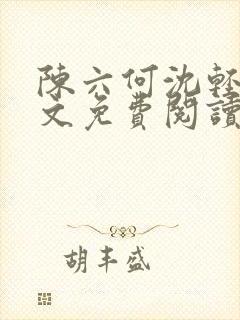 陳六何沈輕
文免費閱讀
胡丰盛